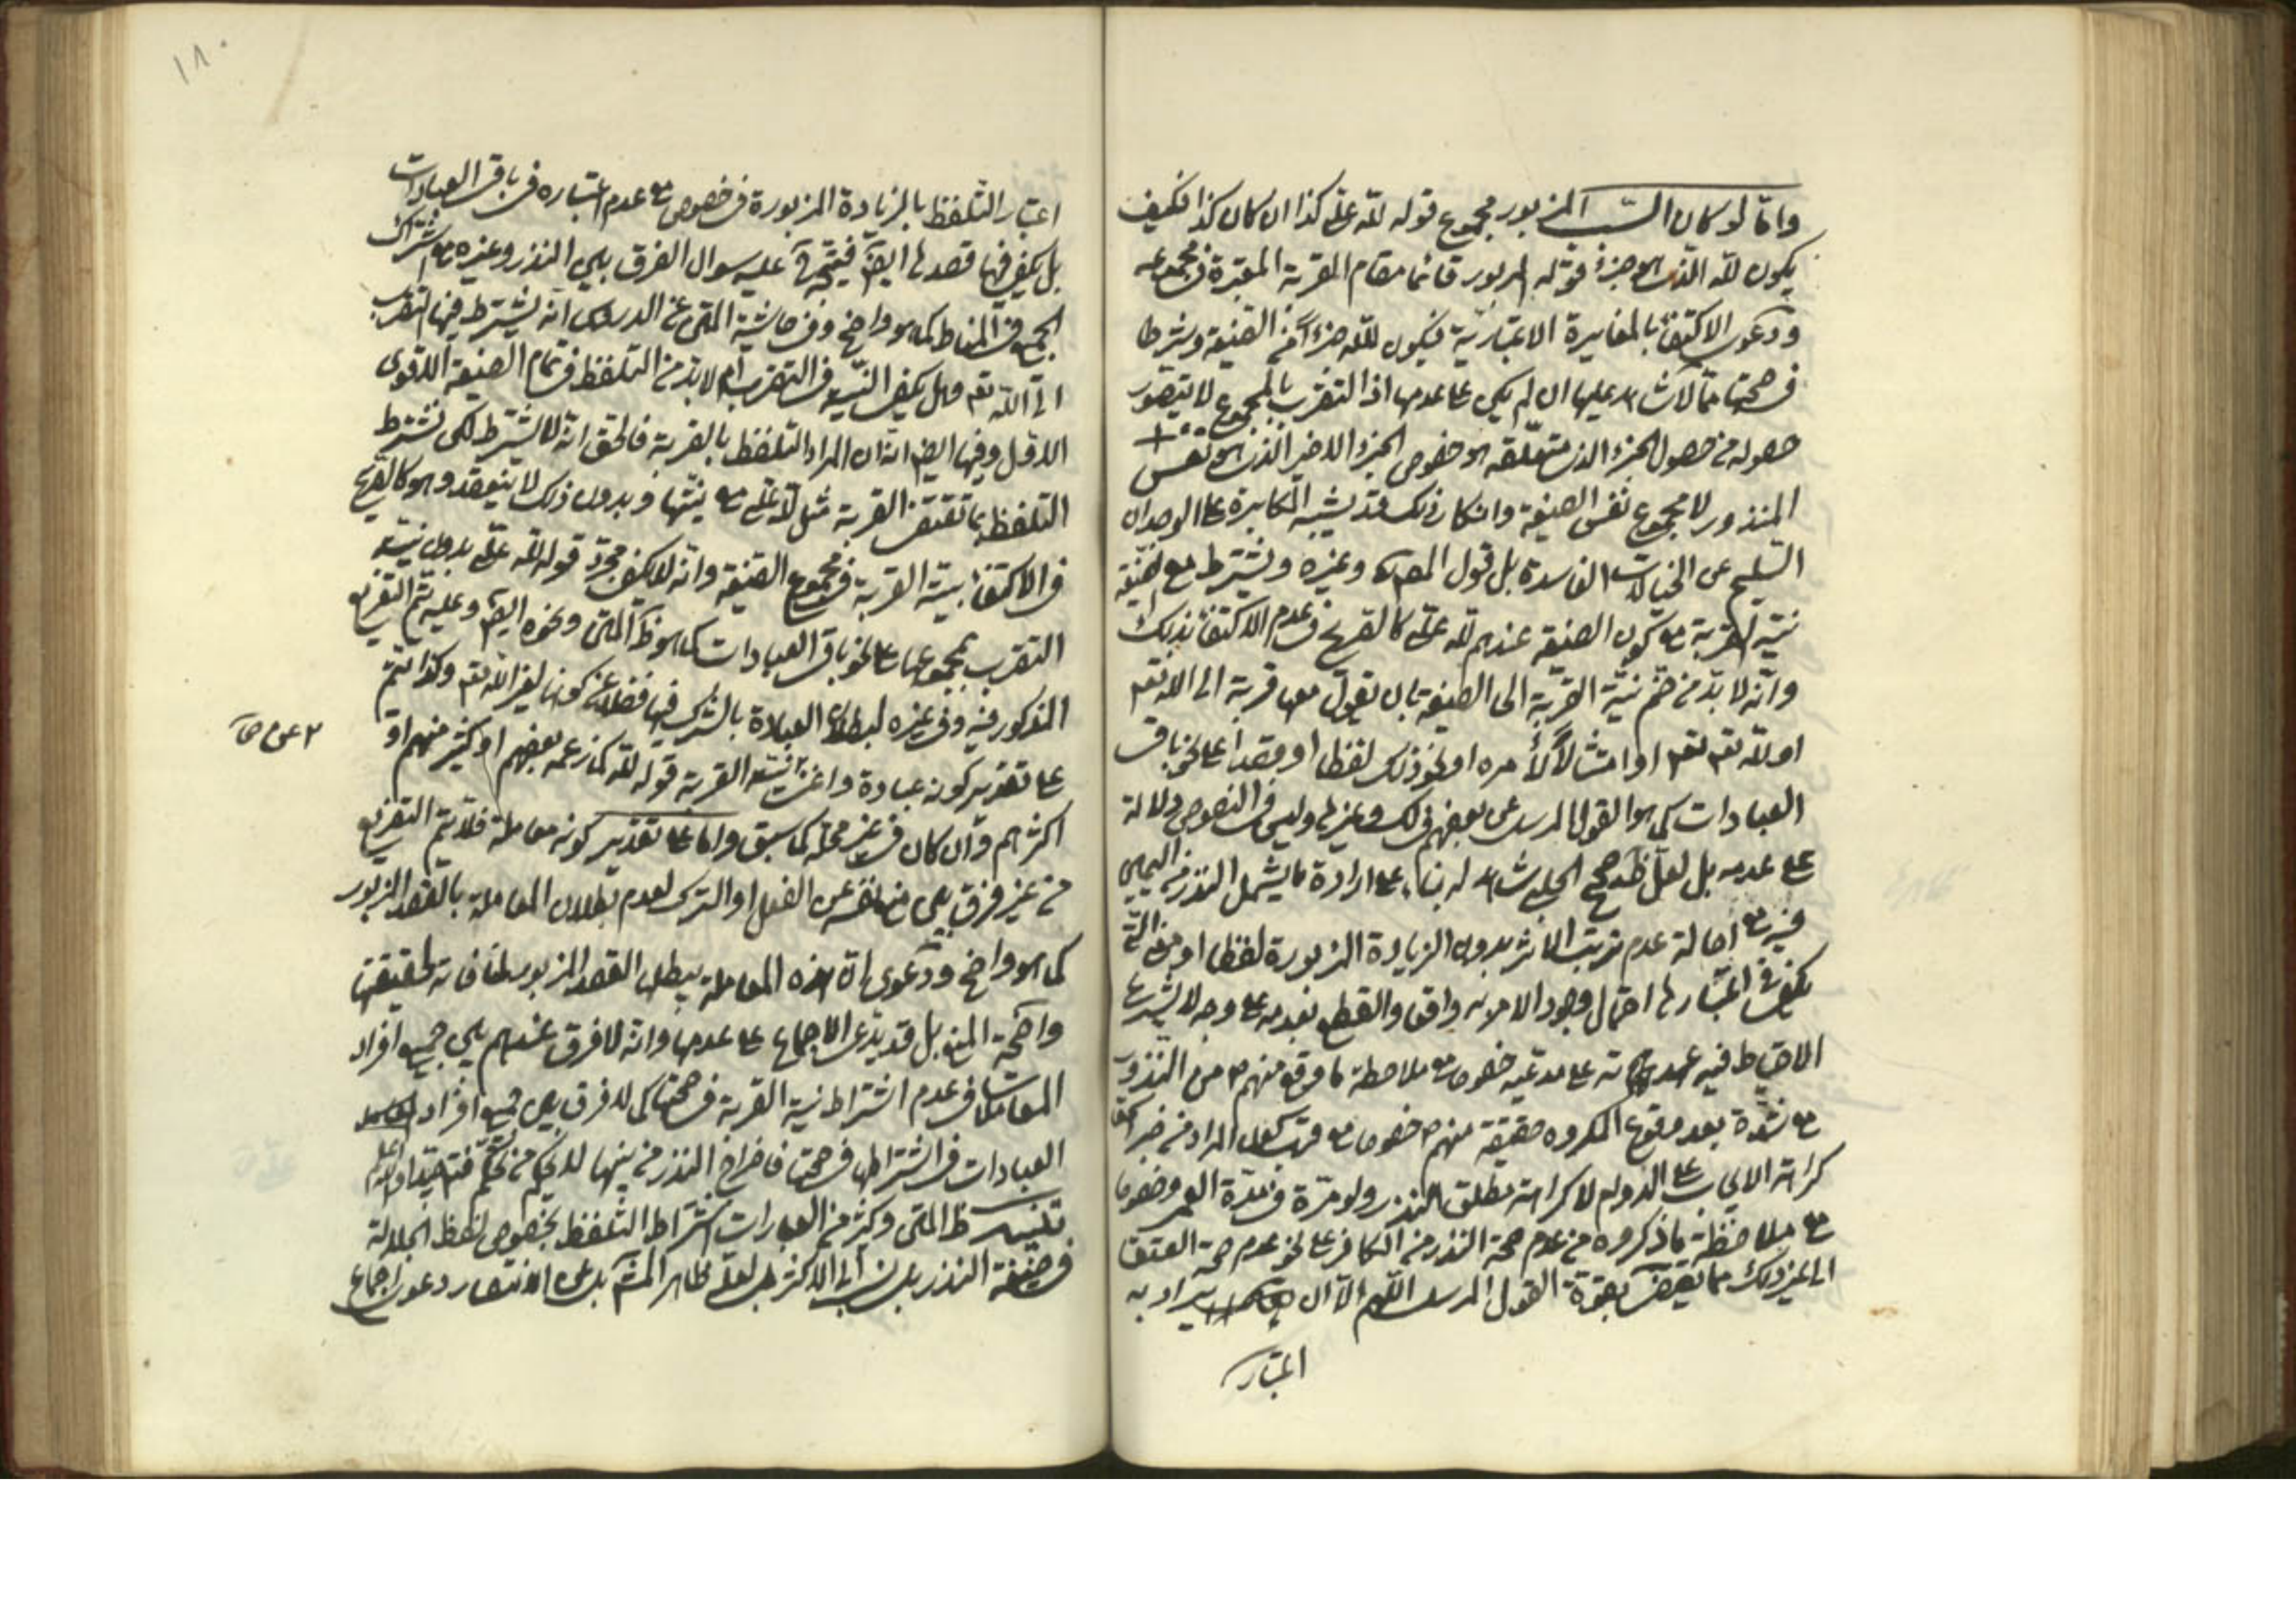 واما لو كان السبب المزبور مجموع قوله لله علي كذا ان كان كذا فكيف
يكون لله الذي هو جزء قوله المزبور قائما مقام القربة المعتبرة في مجموعه
ودعوى الاكتفاء بالمغايرة الاعتبارية فيكون لله جزءا من الصيغة وشرطا
في صحتها مما لا شاهد عليها ان لم يكن على عدمها اذ التقرب بالمجموع لا يتصور
حصوله من حصول الجزء الذي متعلقه هو خصوص الجزء الاخير الذي هو نفس
المنذور لا مجموع نفس الصيغة وانكار ذلك قد يشبه المكابرة على الوجدان
السليم عن الخيالات الفاسدة بل قول المص وغيره ويشترط مع الصيغة
نية القربة مع كون الصيغة عندهم لله علي كالصريح في عدم الاكتفاء بذلك
وانه لا بد من ضم نية القربة الى الصيغة بان يقول معها قربة الى الله تعم
او لله تعم او امتثالا لأمره او نحو ذلك لفظا او قصدا على نحو باقي
العبادات كما هو القول المرسل عن بعضهم في لك وغيرها وليس في النصوص دلالة
على عدمه بل لعل ظ صحيح الحلبي شاهد له بناء على ارادة ما يشمل النذر من اليمين
فيه مع اصالة عدم ترتب الاثر بدون الزيادة المزبورة لفظا او معنى التي
يكفي في اعتبارها احتمال وجود الامر به واقعا والقطع بعدمه على وجه لا يشرع
الاحتياط فيه عهدته على مدعيه خصوصا مع ملاحظة ما وقع منهم ع من النذور
مع شدة بعد وقوع المكروه حقيقة منهم ع خصوصا مع قرب كون المراد من خبر اسحق
كراهة الايجاب على الدوام لا كراهة مطلق النذر ولو مرة في مدة العمر وخصوصا
مع ملاحظة ما ذكروه من عدم صحة النذر من الكافر على نحو عدم صحة العتق
الى غير ذلك مما يقضي بقوة القول المرسل اللهم الا ان يراد به
اعتبار
١٨٠
اعتبار التلفظ بالزيادة المزبورة في خصوص مع عدم اعتباره في باقي العبادات
بل يكفي فيها قصدها ايضا فيتجه ح عليه سؤال الفرق بين النذر وغيره مع اشتراك
الجميع في المناط كما هو واضح وفي حاشية المتن عن الدروس انه يشترط فيها التقرب
الى الله تعم وهل يكفي النية في التقرب ام لا بد من التلفظ في تمام الصيغة الاقوى
الاول وفيها ايضا انه ان المراد التلفظ بالقربة فالحق انه لا يشترط لكن يشترط
التلفظ بما تقتضي القربة مثل لله علي مع نيتها وبدون ذلك لا ينعقد وهو كالصريح
في الاكتفاء بنية القربة في مجموع الصيغة وانه لا يكفي مجرد قوله لله علي بدون نية
التقرب بمجموعها على نحو باقي العبادات كما هو ظ المتن ونحوه ايضا وعليه يتم التفريع
المذكور فيه وفي غيره لبطلان العبادة بالشرك فيها فضلا عن كونها لغير الله تعم وكذا يتم
على تقدير كونه عبادة واغنت عن نية القربة قوله لله كما زعمه بعضهم او كثير منهم او
اكثرهم وان كان في غير محله كما سبق واما على تقدير كونه معاملة فلا يتم التفريع
من غير فرق بين منع نفسه عن الفعل او الترك لعدم بطلان المعاملة بالقصد المزبور
كما هو واضح ودعوى ان هذه المعاملة يبطلها القصد المزبور لمنافاته لحقيقتها
واضحة المنع بل قد يدعى الاجماع على عدمها وانه لا فرق عندهم بين جميع افراد
المعاملات في عدم اشتراط نية القربة في صحتها كما لا فرق بين جميع افراد
العبادات في اشتراطها في صحتها فاخراج النذر من بينها لا يخ من تحكم فتدبر جيدا والله اعلم
تنبيه ظ المتن وكثير من العبارات اشتراط التلفظ بخصوص لفظ الجلالة
في صيغة النذر بل نسب الى الاكثر بل لعله ظاهر المش بل عن الانتصار دعوى اجماع